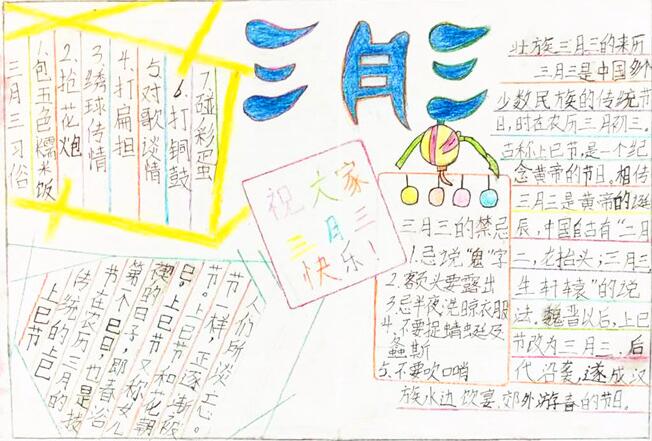 三月三
三月三习俗
1.包五色糯米饭
2.抢花炮
3.绣球传情
4.打扁担
5.对歌谈情
6.打铜鼓
7.碰彩蛋
祝大家
三月三
快乐!
三月三的禁忌
1.忌说"鬼"字
2.额头要露出
3.忌半夜洗晾衣服
4.不要捉蜻蜓及
螽斯
5.不要吹口哨
壮族三月三的来历
三月三是中国多个
少数民族的传统节
日,时在农历三月初三。
古称上巳节,是一个纪
念黄帝的节日。相传
三月三是黄帝的诞
辰,中国自古有“二月
二,龙抬头;三月三,
生轩辕”的说
法。魏晋以后,上巳
节改为三月三,后
代沿袭,遂成汉
族水边饮宴、郊外游春的节日。
上巳节
传统的上巳
节在农历三月的
第一个巳日,也是祓
禊的日子,即春浴
日。上巳节又称女儿
节。上巳节和花朝
节一样,正逐渐被
人们所淡忘。